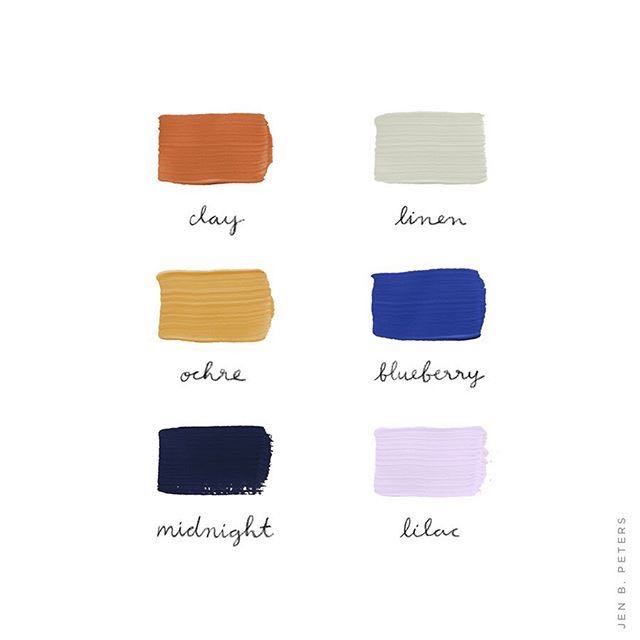 clay
linen
ochre
blueberry
midnight
lilac
JEN B. PETERS